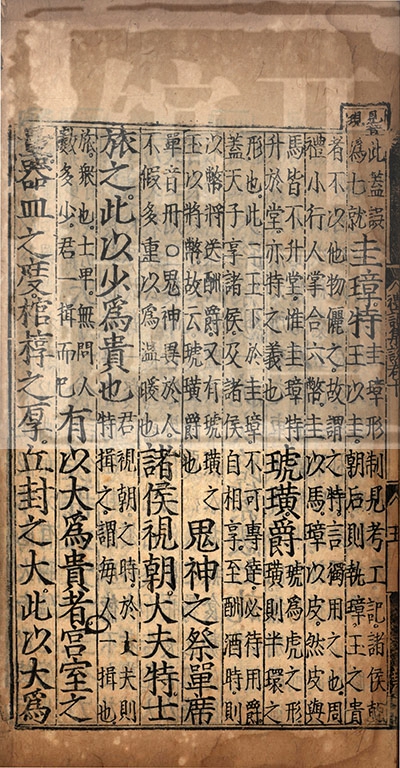 此蓋誤
爲七就
圭璋特
圭璋形制見考工記諸侯朝
王以圭朝后則執璋玉之貴
者不以他物儷之故謂之特言獨用之也周
禮小行人掌合六幣圭以馬璋以皮然皮與
馬皆不升堂惟圭璋特
升於堂亦特之義也
琥璜爵
琥爲虎之形
璜則半環之
形也此二玉下於圭璋不可專達必待用爵
蓋天子享諸侯及諸侯自相享至酬酒時則
以幣將送酬爵又有琥璜之
玉以將幣故云琥璜爵也
鬼神之祭單席
單音丹○鬼神異於人
不假多重以爲溫暖也
諸侯視朝大夫特士
旅之此以少爲貴也
君視朝之時於大夫則
特揖之謂每人一揖也
旅衆也士卑無問人
數多少君一揖而已
有以大爲貴者宮室之
量器皿之度棺椁之厚丘封之大此以大爲